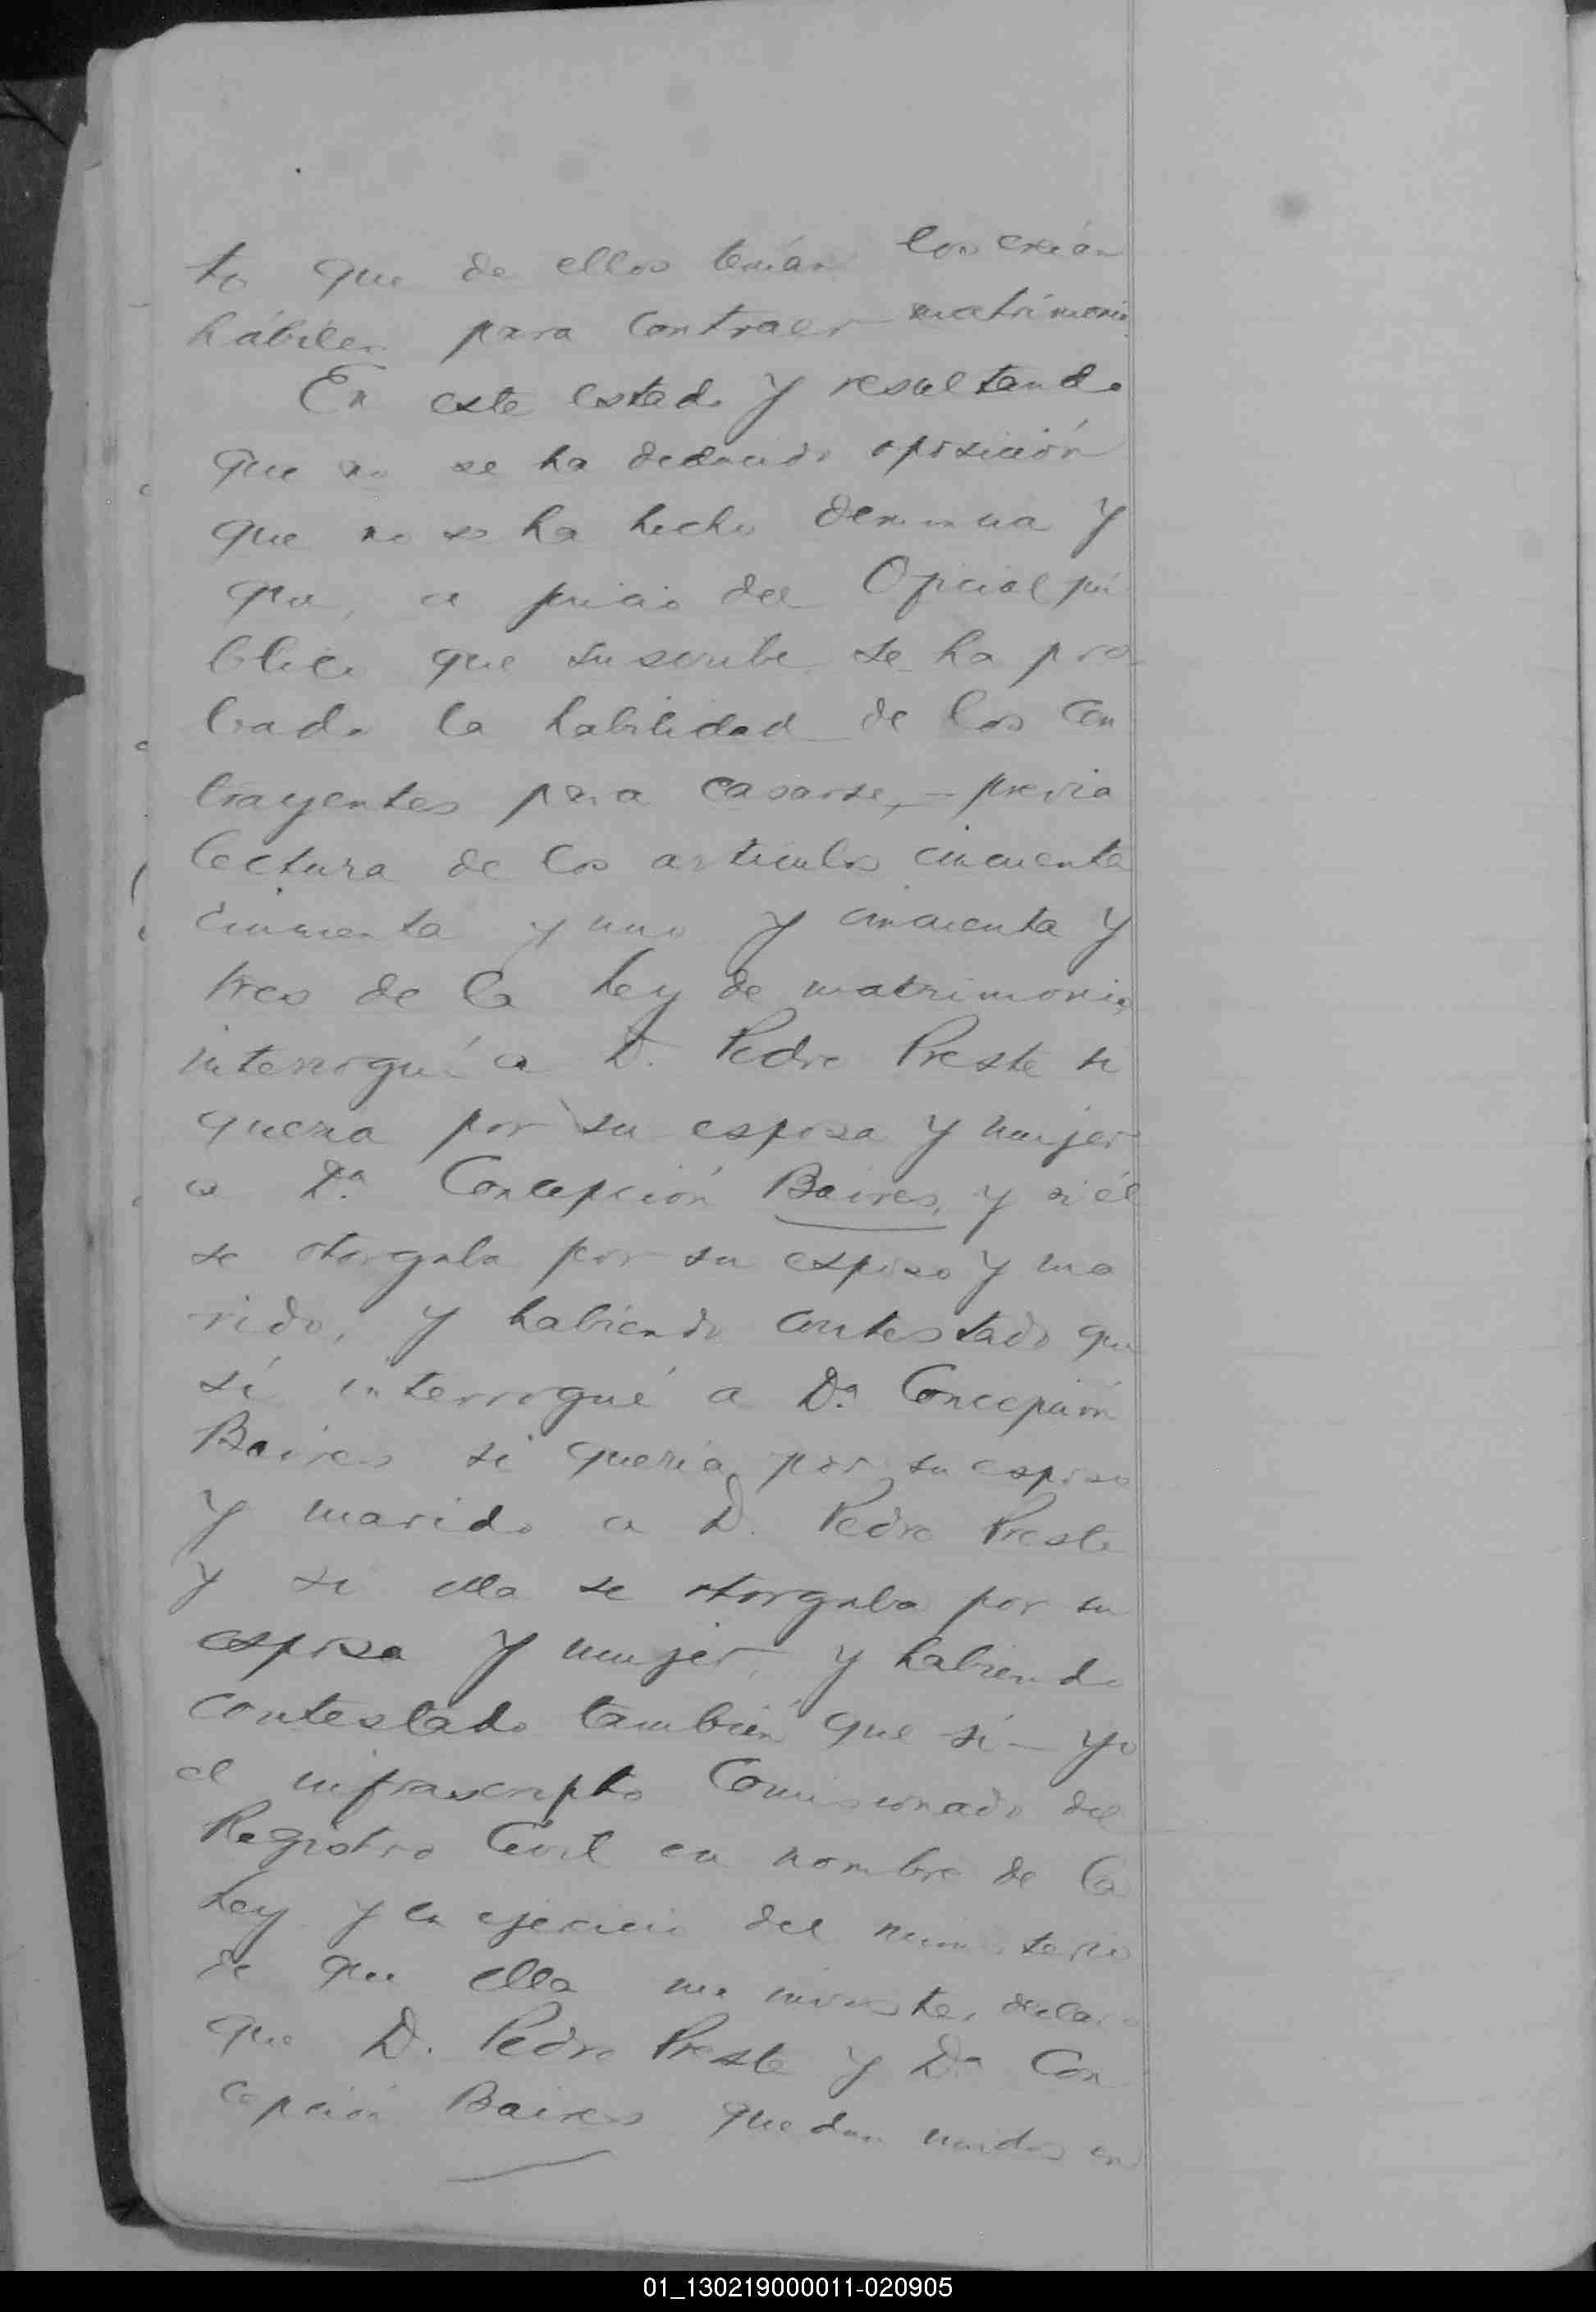 to que de ellos tenían los creían
hábiles para contraer matrimonio.
En este estado y resultando
que no se ha deducido oposición
que no se ha hecho denuncia y
que, a juicio del Oficial pú
blico que suscribe se ha pro-
bado la habilidad de los con
trayentes para casarse, - previa
lectura de los artículos cincuenta
cincuenta y uno y cincuenta y
tres de la ley de matrimonio,
interrogué a D. Pedro Preste si
quería por su esposa y mujer
a Dª. Concepción Baires, y si él
se otorgaba por su esposo y ma
rido, y habiendo contestado que
sí interrogué a Dª. Concepción
Baires si quería por su esposo
y marido a D. Pedro Preste
y si ella se otorgaba por su
esposa y mujer, y habiendo
contestado también que sí - yo
el infrascripto Comisionado del
Registro Civil en nombre de la
ley y en ejercicio del ministerio
de que ella me inviste, declaro
que D. Pedro Preste y Dª Con
cepción Baires quedan unidos en
01_130219000011-020905